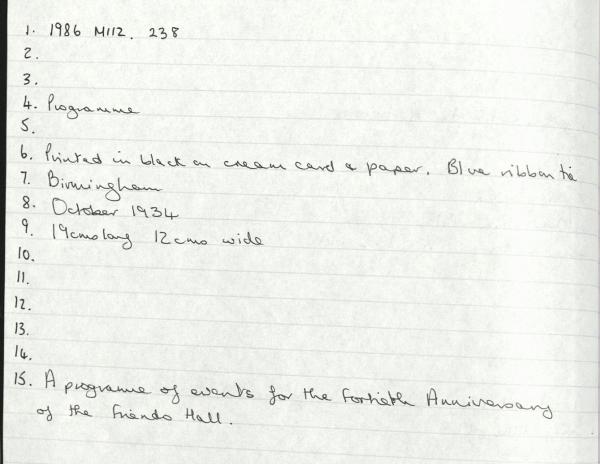 1. 1986 M112. 238
2.
3.
4. Programme
5.
6. Printed in black on cream card & paper. Blue ribbon tie
7. Birmingham
8. October 1934
9. 19cms long 12cms wide
10.
11.
12.
13.
14.
15. A programe of events for the Fortieth Anniversary
of the Friends Hall.